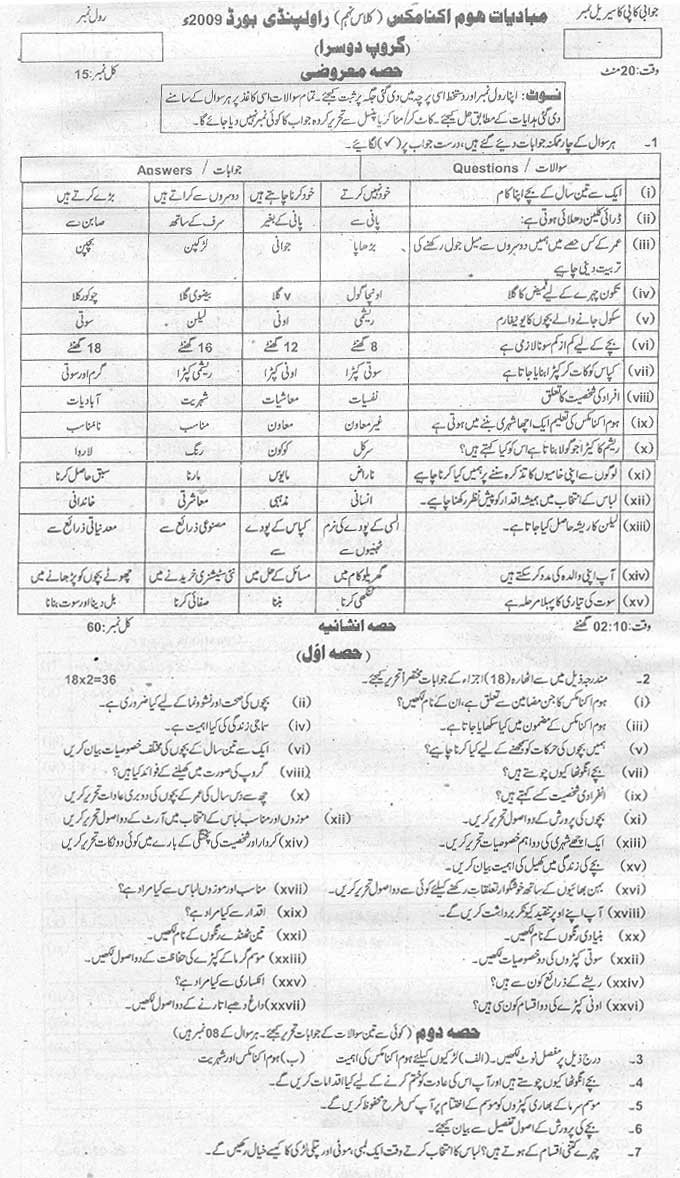 جوابی کاپی کا سیریل نمبر مبادیات ھوم اکنامکس (کلاس نہم) راولپنڈی بورڈ 2009ء رول نمبر
(گروپ دوسرا)
وقت:20 منٹ حصہ معروضی کل نمبر:15
نوٹ: اپنا رول نمبر اور دستخط اسی پرچہ میں دی گئی جگہ پر ثبت کیجئے۔ تمام سوالات اسی کاغذ پر ہر سوال کے سامنے
دی گئی ہدایات کے مطابق حل کیجئے۔ کاٹ کر/مٹا کر یا پنسل سے تحریر کردہ جواب کا کوئی نمبر نہیں دیا جائے گا۔
1۔ ہر سوال کے چار ممکنہ جوابات دیئے گئے ہیں، درست جواب پر (✓) لگائیے۔
سوالات / Questions جوابات / Answers
(i) ایک سے تین سال کے بچے اپنا کام خود نہیں کرتے خود کرنا چاہتے ہیں دوسروں سے کراتے ہیں بڑے کرتے ہیں
(ii) ڈرائی کلین دھلائی ہوتی ہے: پانی سے پانی کے بغیر سرف کے ساتھ صابن سے
(iii) عمر کے کس حصے میں ہمیں دوسروں سے میل جول رکھنے کی بڑھاپا جوانی لڑکپن بچپن
تربیت دینی چاہیے
(iv) تکون چہرے کے لیے قمیض کا گلا اونچا گول v گلا بیضوی گلا چوکور گلا
(v) سکول جانے والے بچوں کا یونیفارم ریشمی اونی لیلن سوتی
(vi) بچے کے لیے کم از کم سونا لازمی ہے 8 گھنٹے 12 گھنٹے 16 گھنٹے 18 گھنٹے
(vii) کپاس کو کات کر کپڑا بنایا جاتا ہے سوتی کپڑا اونی کپڑا ریشمی کپڑا گرم اور سوتی
(viii) افراد کی شخصیت کا تعلق نفسیات معاشیات شہریت آبادیات
(ix) ہوم اکنامکس کی تعلیم ایک اچھا شہری بننے میں ہوتی ہے غیر معاون معاون مناسب نامناسب
(x) ریشم کا کیڑا جو گولا بناتا ہے اس کو کیا کہتے ہیں؟ سرکل کوکون رنگ لاروا
(xi) لوگوں سے اپنی خامیوں کا تذکرہ سننے پر ہمیں کیا کرنا چاہیے ناراض مایوس مارنا سبق حاصل کرنا
(xii) لباس کے انتخاب میں ہمیشہ اقدار کو پیش نظر رکھنا چاہیے۔ انسانی مذہبی معاشرتی خاندانی
(xiii) لیلن کا ریشہ حاصل کیا جاتا ہے۔ السی کے پودے کی نرم ٹہنیوں سے کپاس کے پودے سے مصنوعی ذرائع سے معدنیاتی ذرائع سے
(xiv) آپ اپنی والدہ کی مدد کر سکتے ہیں گھریلو کام میں مسائل کے حل میں نئی سٹیشنری خریدنے میں چھوٹے بچوں کو پڑھانے میں
(xv) سوت کی تیاری کا پہلا مرحلہ ہے کنگھی کرنا بننا صفائی کرنا بل دینا اور سوت بنانا
وقت:02:10 گھنٹے حصہ انشائیہ کل نمبر:60
(حصہ اوّل)
2۔ مندرجہ ذیل میں سے اٹھارہ (18) اجزاء کے جوابات مختصراً تحریر کیجئے۔ 18x2=36
(i) ہوم اکنامکس کا جن مضامین سے تعلق ہے، ان کے نام لکھیں؟ (ii) بچوں کی صحت اور نشوونما کے لیے کیا ضروری ہے۔
(iii) ہوم اکنامکس کے مضمون میں کیا سکھایا جاتا ہے۔ (iv) سماجی زندگی کی کیا اہمیت ہے۔
(v) ہمیں بچوں کی حرکات کو سمجھنے کے لیے کیا کرنا چاہیے؟ (vi) ایک سے تین سال کے بچوں کی مختلف خصوصیات بیان کریں
(vii) بچے انگوٹھا کیوں چوستے ہیں؟ (viii) گروپ کی صورت میں کھیلنے کے فوائد کیا ہیں؟
(ix) انفرادی شخصیت کسے کہتے ہیں؟ (x) چھ سے دس سال کی عمر کے بچوں کی دو بری عادات تحریر کریں
(xi) بچوں کی پرورش کے دو اصول تحریر کریں۔ (xii) موزوں اور مناسب لباس کے انتخاب میں آرٹ کے دو اصول تحریر کریں
(xiii) ایک اچھے شہری کی دو اہم خصوصیات تحریر کریں۔ (xiv) کردار اور شخصیت کی پختگی کے بارے میں کوئی دو نکات تحریر کریں
(xv) بچے کی زندگی میں کھیل کی اہمیت بیان کریں۔
(xvi) بہن بھائیوں کے ساتھ خوشگوار تعلقات رکھنے کیلئے کوئی سے دو اصول تحریر کریں۔ (xvii) مناسب اور موزوں لباس سے کیا مراد ہے؟
(xviii) آپ اپنے اوپر تنقید کیونکر برداشت کریں گے۔ (xix) اقدار سے کیا مراد ہے؟
(xx) بنیادی رنگوں کے نام لکھیں۔ (xxi) تین ٹھنڈے رنگوں کے نام لکھیں۔
(xxii) سوتی کپڑوں کی دو خصوصیات لکھیں۔ (xxiii) موسم گرما کے کپڑے کی حفاظت کے دو اصول لکھیں۔
(xxiv) ریشے کے ذرائع کون سے ہیں؟ (xxv) انکساری سے کیا مراد ہے؟
(xxvi) اونی کپڑے کی دو اقسام کون سی ہیں؟ (xxvii) داغ دھبے اتارنے کے دو اصول لکھیں۔
حصہ دوم (کوئی سے تین سوالات کے جوابات تحریر کیجئے۔ ہر سوال کے 08 نمبر ہیں)
3۔ درج ذیل پر مفصل نوٹ لکھیں۔ (الف) لڑکیوں کیلئے ہوم اکنامکس کی اہمیت (ب) ہوم اکنامکس اور شہریت
4۔ بچے انگوٹھا کیوں چوستے ہیں اور آپ اس کی عادت کو ختم کرنے کے لیے کیا اقدامات کریں گے۔
5۔ موسم سرما کے بھاری کپڑوں کو موسم کے اختتام پر آپ کس طرح محفوظ کریں گے۔
6۔ بچے کی پرورش کے اصول تفصیل سے بیان کیجئے۔
7۔ چہرے کتنی اقسام کے ہوتے ہیں؟ لباس کا انتخاب کرتے وقت ایک لمبی، موٹی اور پتلی لڑکی کا کیسے خیال رکھیں گے۔